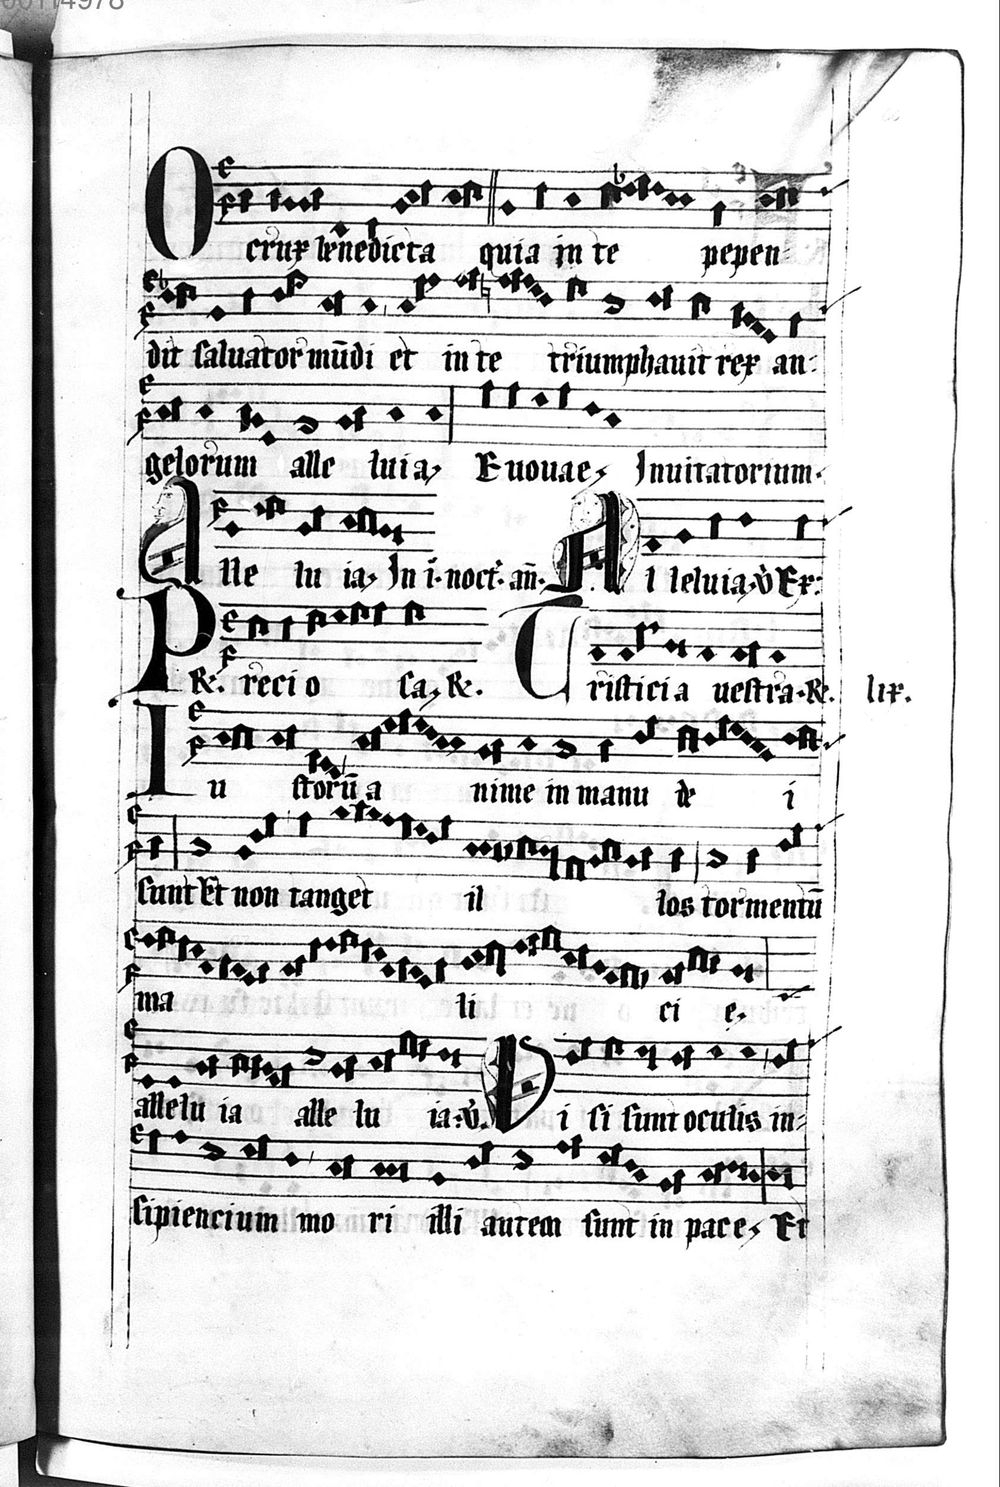 00114978
O crux benedicta quia in te pepen-
dit saluator mūdi et in te triumphauit rex an-
gelorum alle luia, Euouae, Inuitatorium.
Alle lu ia, In i. noct. an̄. Alleluia, v̄ Ex:
P R. recio sa, R. Tristicia uestra. R. lix.
Iu storū a nime in manu de i
sunt Et non tanget il los tormentū
ma li ci e,
allelu ia alle lu ia. v̄. Vi si sunt oculis in-
sipiencium mo ri illi autem sunt in pace, Et